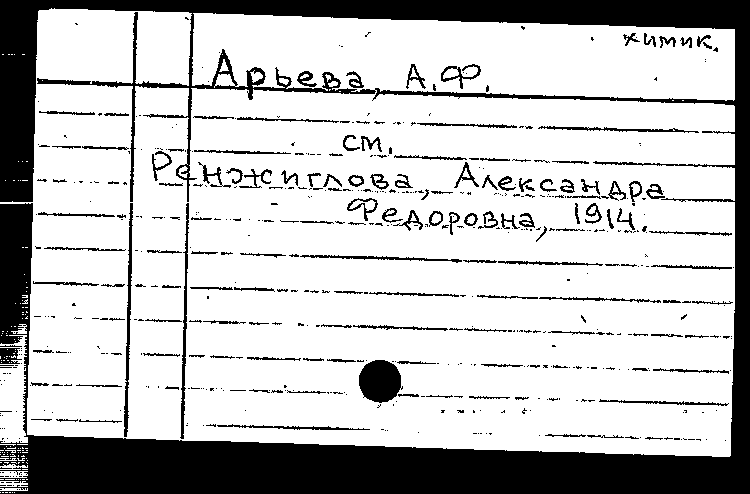 химик.
Арьева, А.Ф.
см.
Ренжиглова, Александра
Федоровна, 1914.